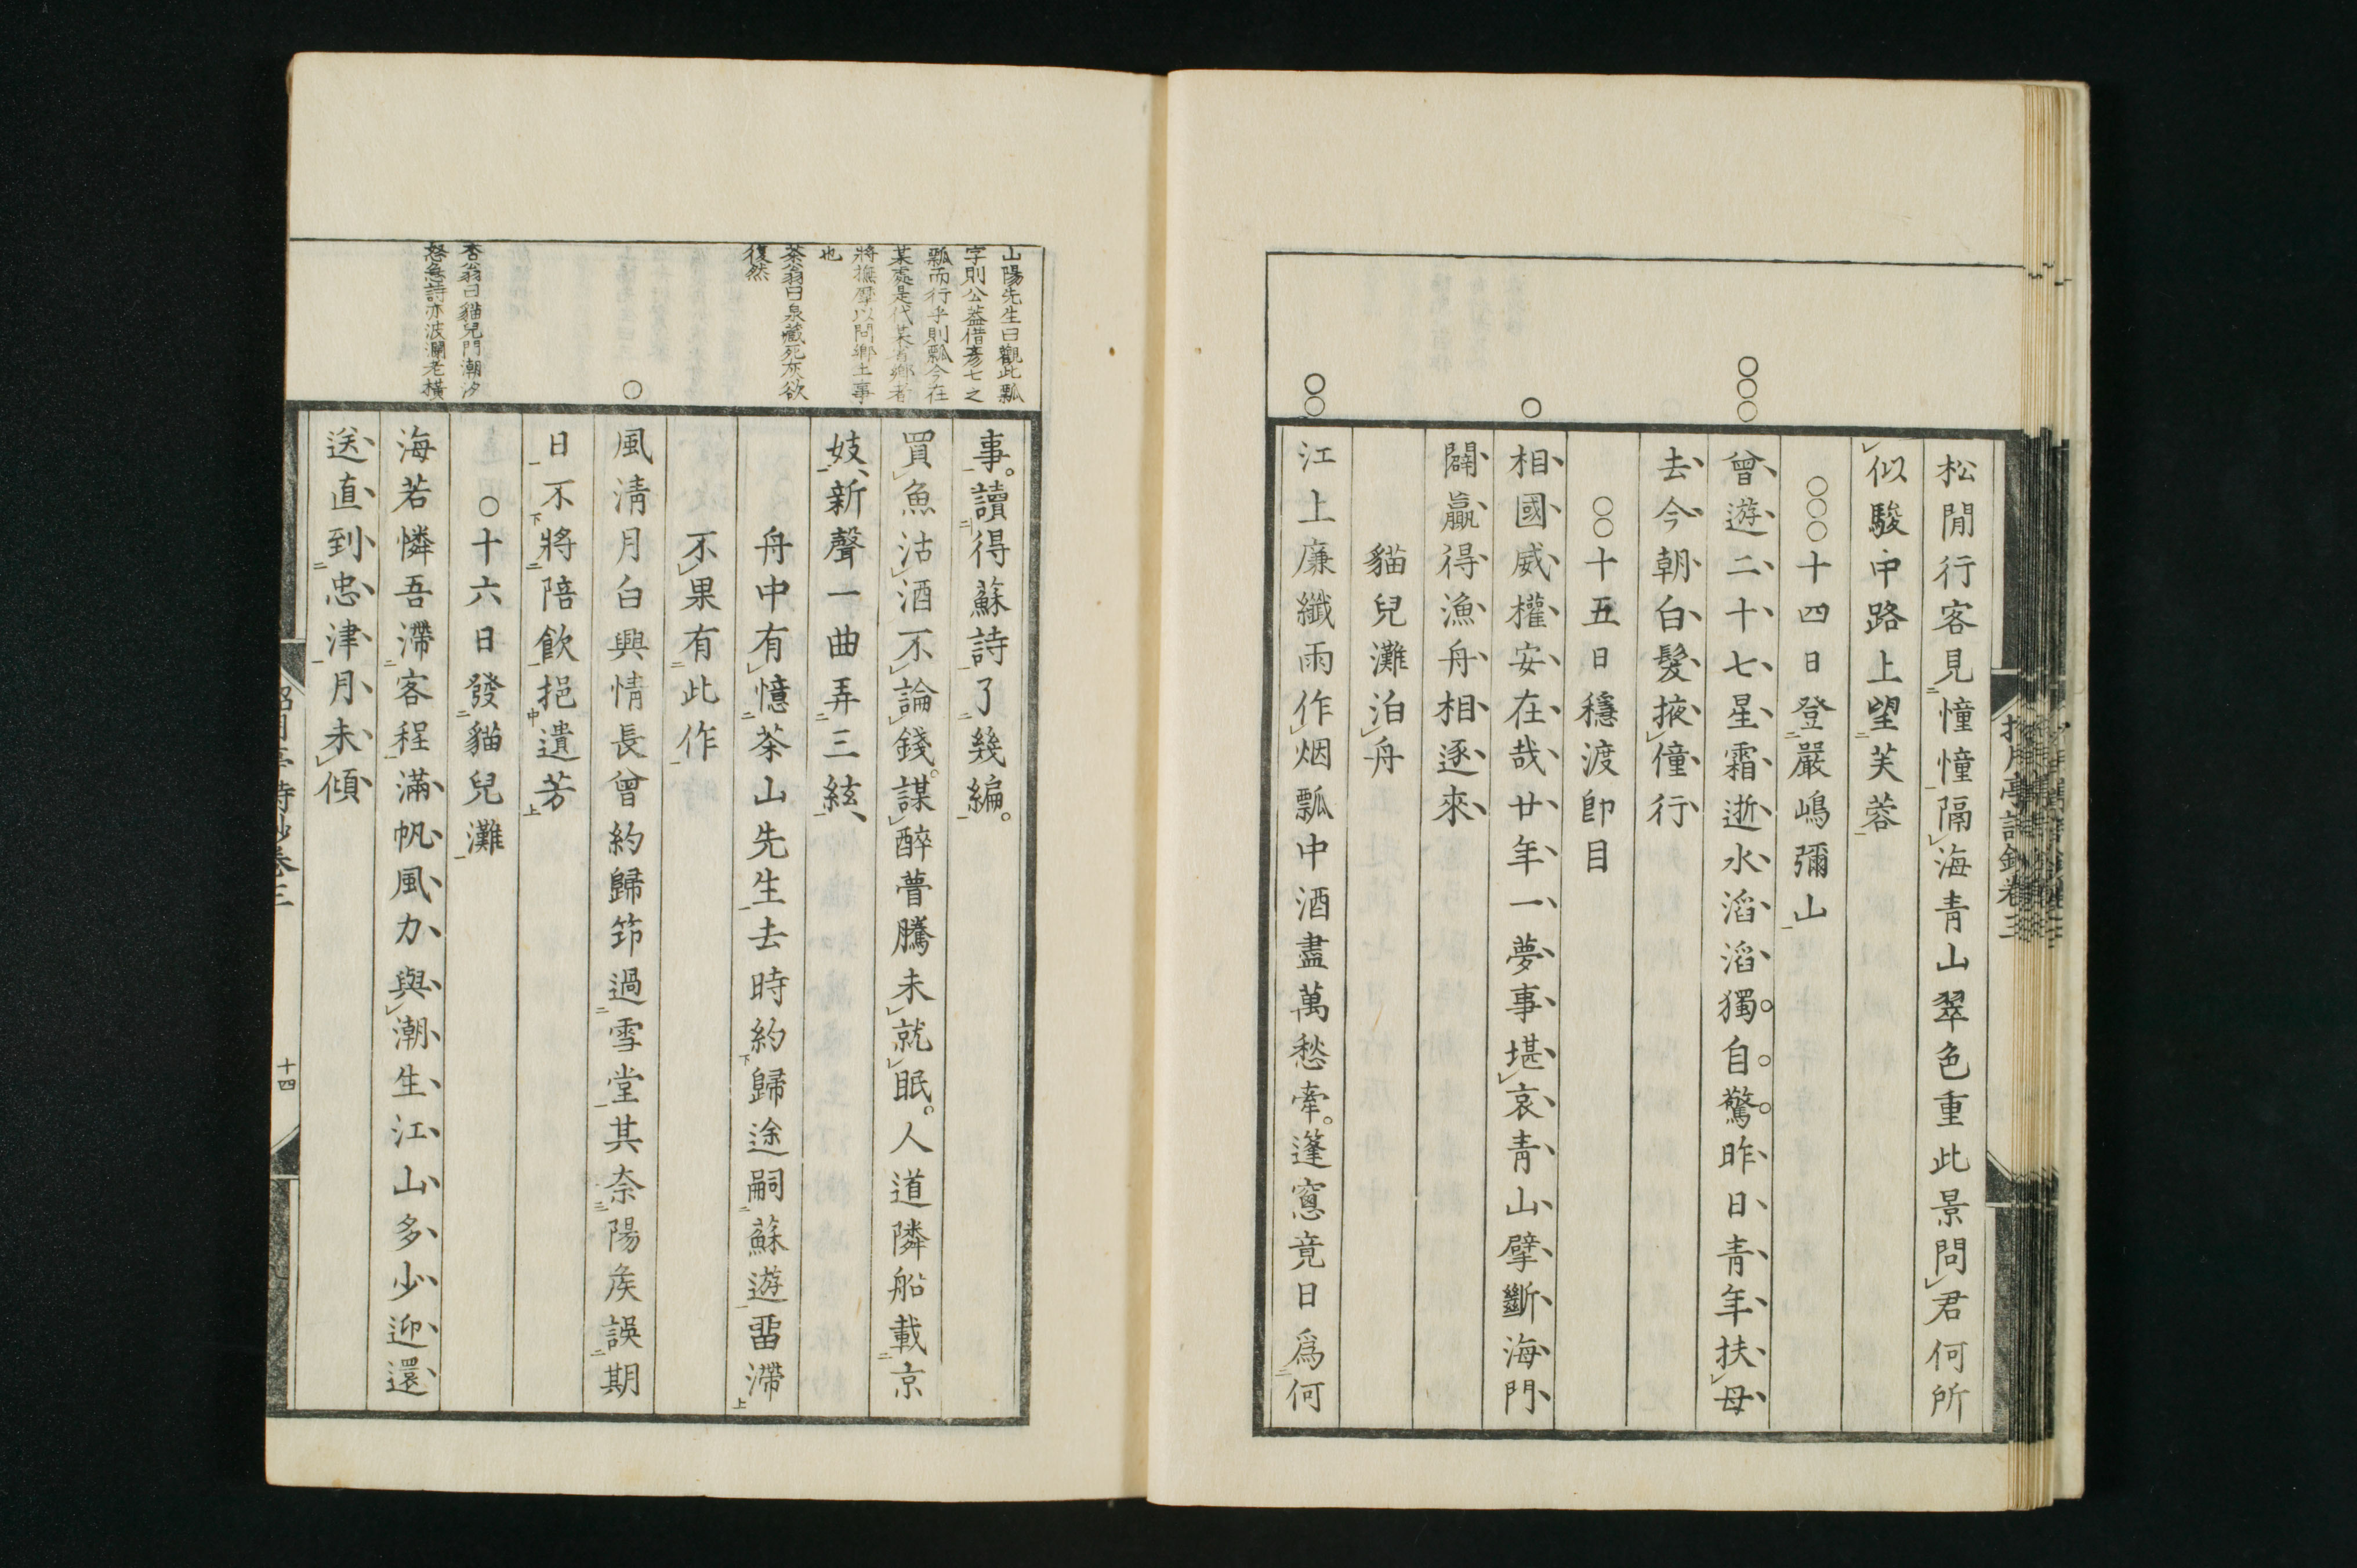 松間行客見憧憧隔海青山翠色重此景問君何所
似駿中路上望芙蓉
○○○十四日登嚴嶋彌山
曾遊二十七星霜逝水滔滔獨自驚昨日青年扶母
去今朝白髮掖僮行
○○十五日穩渡即目
相國威權安在哉廿年一夢事堪哀青山擘斷海門
闢贏得漁舟相逐來
貓兒灘泊舟
江上廉纖雨作烟瓢中酒盡萬愁牽。篷窓竟日爲何
事。讀得蘇詩了幾編。
買魚沽酒不論錢。謀醉瞢騰未就眠。人道隣船載京
妓、新聲一曲弄三絃、
舟中有憶茶山先生去時約歸途嗣蘇遊畱滯
不果有此作
風淸月白興情長曾約歸笻過雪堂其奈陽矦誤期
日不將陪飮挹遺芳
○十六日發貓兒灘
海若憐吾滯客程滿帆風力與潮生江山多少迎還
送直到忠津月未傾
山陽先生曰觀此瓢
字則公葢借彥七之
瓢而行乎則瓢今在
某處是代某省鄉者
將撫摩以問鄉土事
也
茶翁曰泉藏死灰欲
復然
杏翁曰貓兒門潮汐
怒急詩亦波瀾老橫
十四